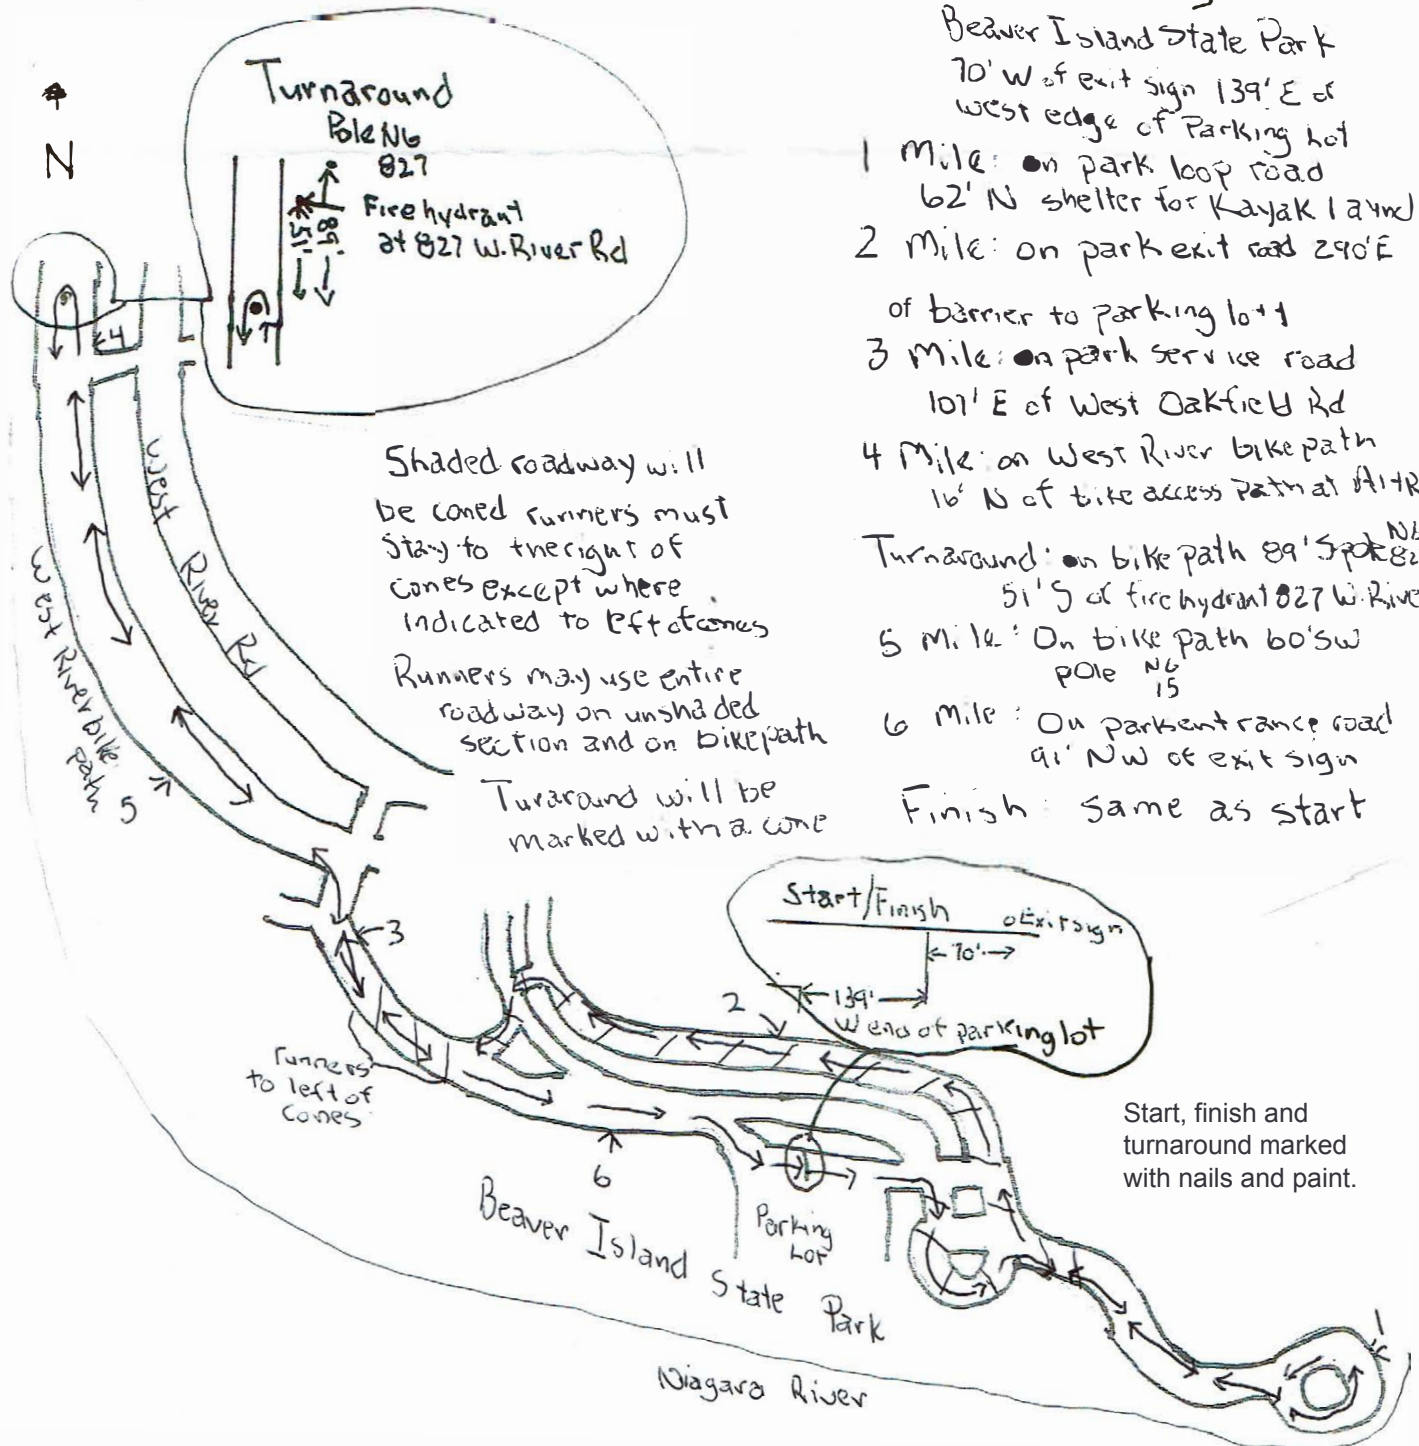 N
Turnaround
Pole N6
827
Fire hydrant
at 827 W. River Rd
51'
89'
4
West River Rd
West River bike path
5
Shaded roadway will
be coned runners must
Stay to the right of
cones except where
indicated to left of cones
Runners may use entire
roadway on unshaded
section and on bike path
Turaround will be
marked with a cone
Beaver Island State Park
70' W of exit sign 139' E of
west edge of Parking Lot
1 Mile: on park loop road
62' N shelter for Kayak
2 Mile: on park exit road 290' E
of barrier to parking lot
3 Mile: on park service road
107' E of West Oakfield Rd
4 Mile: on West River bike path
16' N of bike access path at
Turnaround: on bike path 89' S pole N6
51' S of fire hydrant 827 W. River
5 Mile: On bike path 60' SW
pole N6
15
6 Mile: On park entrance road
91' NW of exit sign
Finish: same as start
Start/Finish
Exit sign
70'
139'
W end of parking lot
3
2
runners
to left of
cones
6
Parking
Lot
Start, finish and
turnaround marked
with nails and paint.
1
Beaver Island State Park
Niagara River